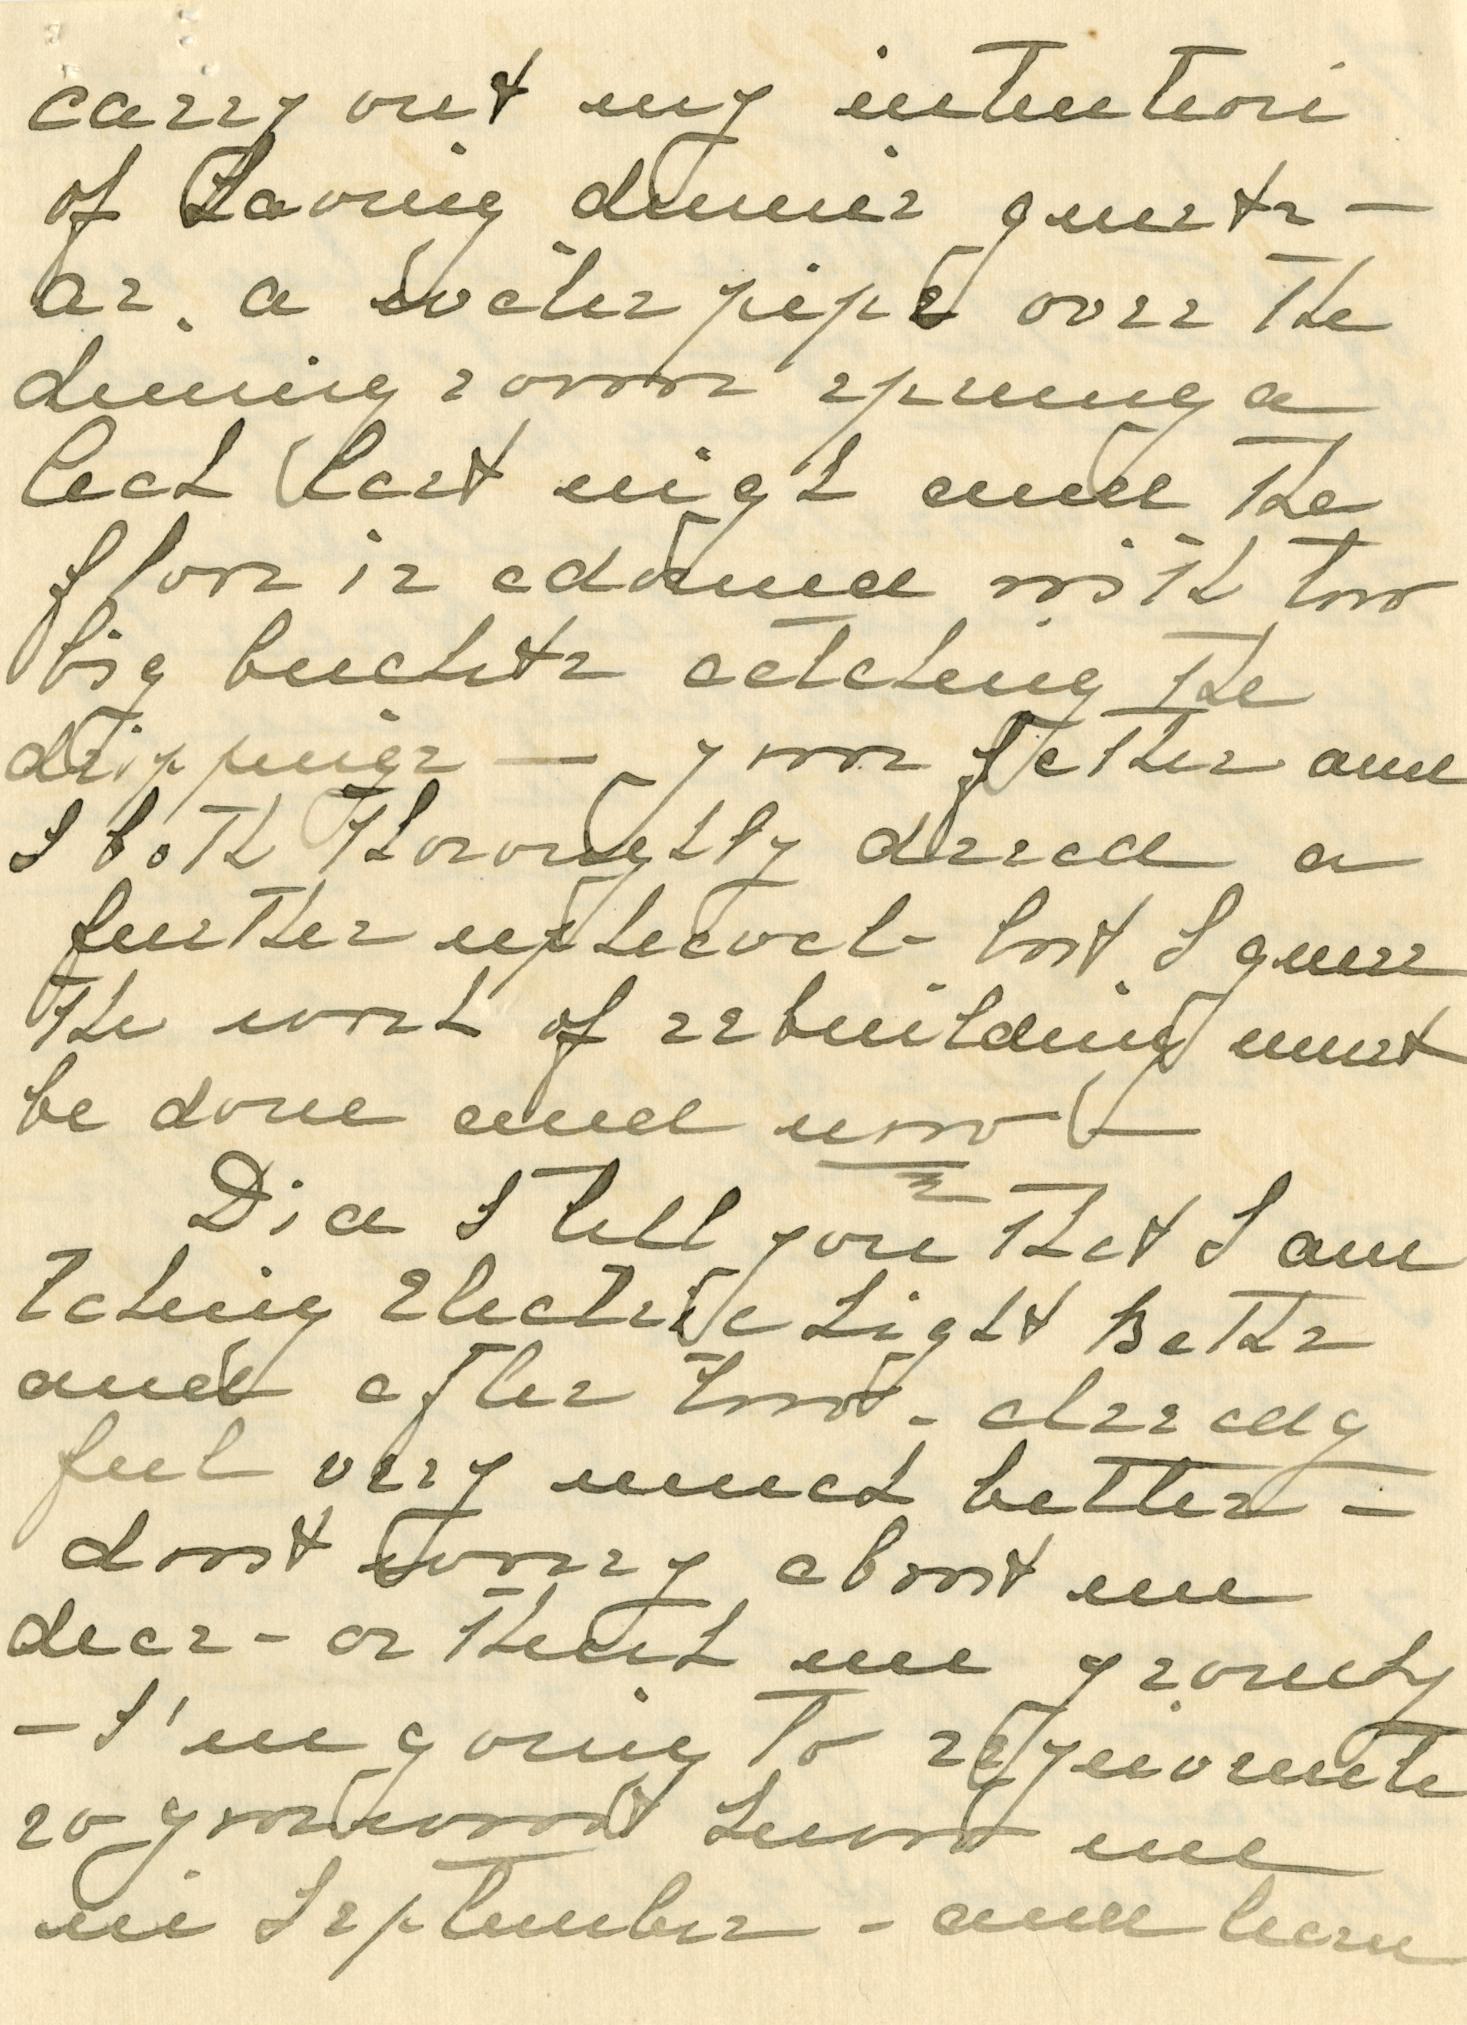 carry out my intention
of having dinner guests —
as. a water pipe over the
dining room sprung a
leak last night and the
floor is adorned with two
big buckets catching the
drippings — your father and
I both thoroughly dread a
further upheaval - but I guess
the work of rebuilding must
be done and now! —
Did I tell you that I am
taking Electric Light Baths
and after two - already
feel very much better —
dont worry about me
dear - or think me grouchy
— I'm going to rejuvenate
so you wont know me
in September - and learn